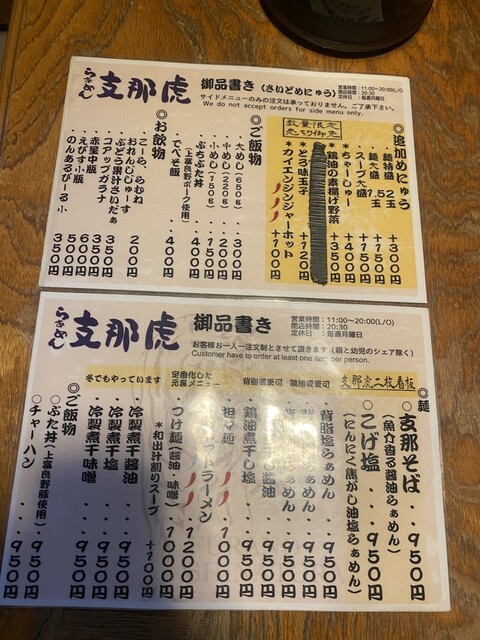 らぁめん 支那虎 御品書き（さいどめにゅう）
営業時間：11:00～20:00(L/O)
閉店時間：20:30
定休日：毎週月曜日
サイドメニューのみの注文は承っておりません。ご了承下さい。
We do not accept orders for side menu only.
◎追加めにゅう
麺特盛 2玉 +300円
麺大盛 1.5玉 +150円
スープ大盛 +150円
・ちゃーしゅー +350円
数量限定
売切御免
*鶏油の素揚げ野菜 +400円
*とろ味玉子 +120円
*カイエンジンジャーホット +100円
◎ご飯物
・大めし(650g) 300円
・中めし(220g) 200円
・小めし(150g) 150円
・ぷちぶた丼 400円
(上富良野ポーク使用)
・でべそ飯 400円
◎お飲物
・こーら、らむね 200円
おれんじじゅーす
ぶどう果汁さいだぁ
コアップガラナ 350円
・赤星中瓶 650円
・えびす小瓶 600円
・のんあるびーる小 500円
350円
らぁめん 支那虎 御品書き
営業時間：11:00～20:00(L/O)
閉店時間：20:30
定休日：毎週月曜日
お客様お一人一注文制とさせて頂きます（親と幼児のシェア除く）
Customer have to order at least one item per person.
◎麺
支那虎二枚看板
◎支那そば 950円
（魚介香る醤油らぁめん）
◎こげ塩 950円
（にんにく焦がし油塩らぁめん）
背脂変更可 鶏油変更可
背脂塩らぁめん 950円
らぁめん 950円
らぁめん 950円
醤油 950円
鶏油煮干し塩 950円
定番化した
元裏メニュー
担々麺
ラーメン
つけ麺（醤油・味噌）
*和出汁割りスープ +100円
冬でもやっています
冷製煮干醤油 950円
冷製煮干塩 950円
冷製煮干味噌 950円
◎ご飯物
◎ぶた丼（上富良野豚使用） 950円
◎チャーハン 950円